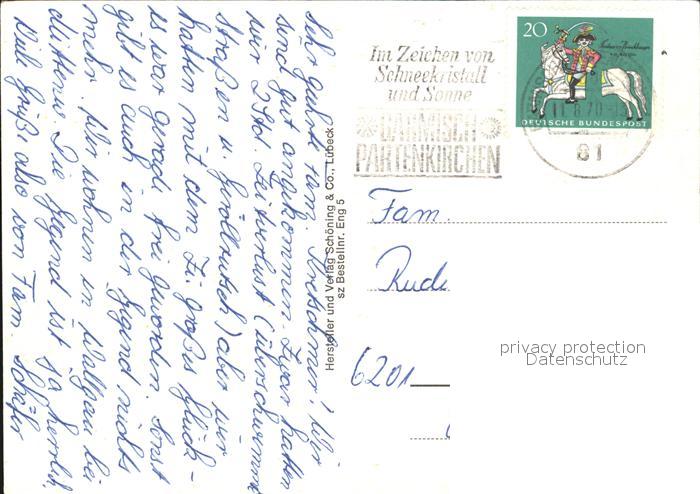 Sehr geehrte Fam. Kretschmer! Wir
sind gut angekommen. Zwar hatten
wir 2 Std. Zeitverlust (überschwemmte
Straßen u. Geröllrutsch) aber wir
hatten mit dem Zi. großes Glück -
es war gerade frei geworden. Sonst
gibt es auch in der Gegend nichts
mehr. Wir wohnen in Wallgau bei
Mittenw. Die Gegend ist ja herrlich.
Viele Grüße also von Fam. Schäfer
Hersteller und Verlag Schöning & Co., Lübeck
sz Bestellnr. Eng 5
Im Zeichen von
Schneekristall
und Sonne
GARMISCH
PARTENKIRCHEN
20
DEUTSCHE BUNDESPOST
81
Fam.
Rudi
6201
privacy protection
Datenschutz